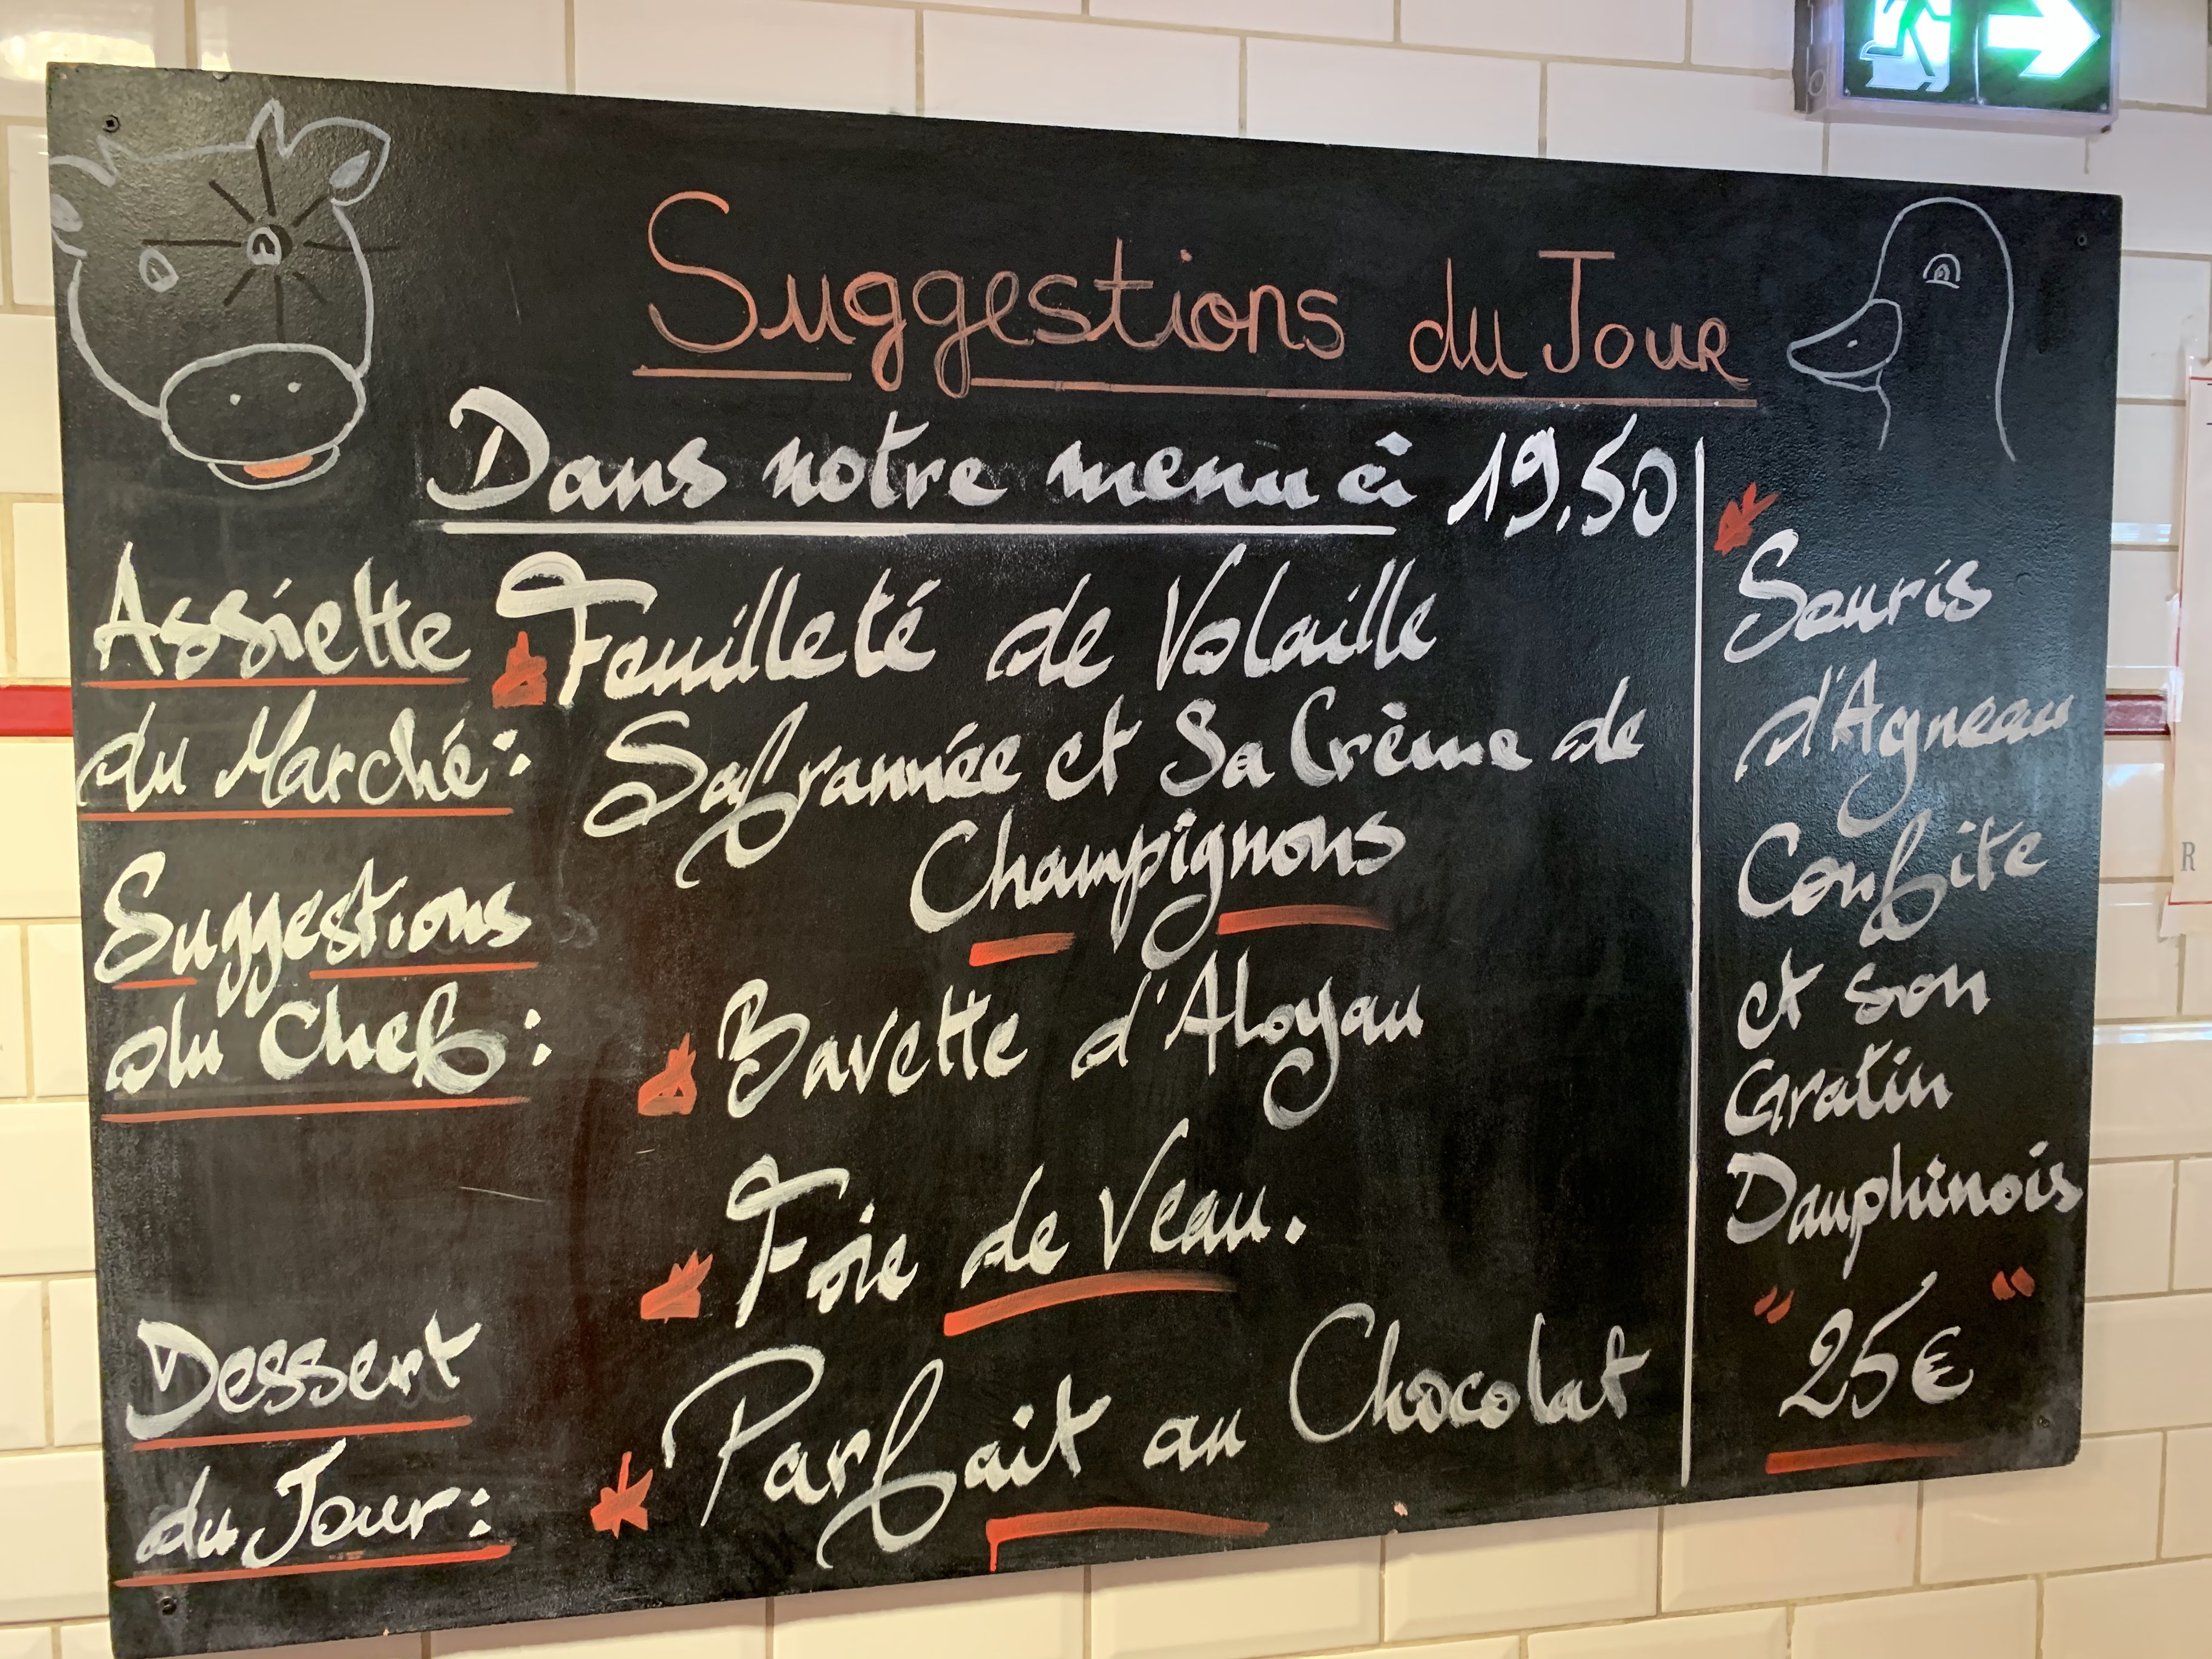 Suggestions du Jour
Dans notre menu à 19,50
Assiette
du Marché:
Feuilleté de Volaille
Safrannée et Sa Crème de
Champignons
Suggestions
du Chef:
Bavette d'Aloyau
Foie de Veau.
Dessert
du Jour:
Parfait au Chocolat
Souris
d'Agneau
Confite
et son
Gratin
Dauphinois
" 25€ "
R